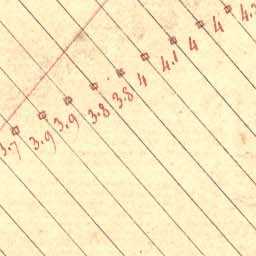 3.7 3.9 3.9 3.8 3.8 4 4.1 4 4 4.2